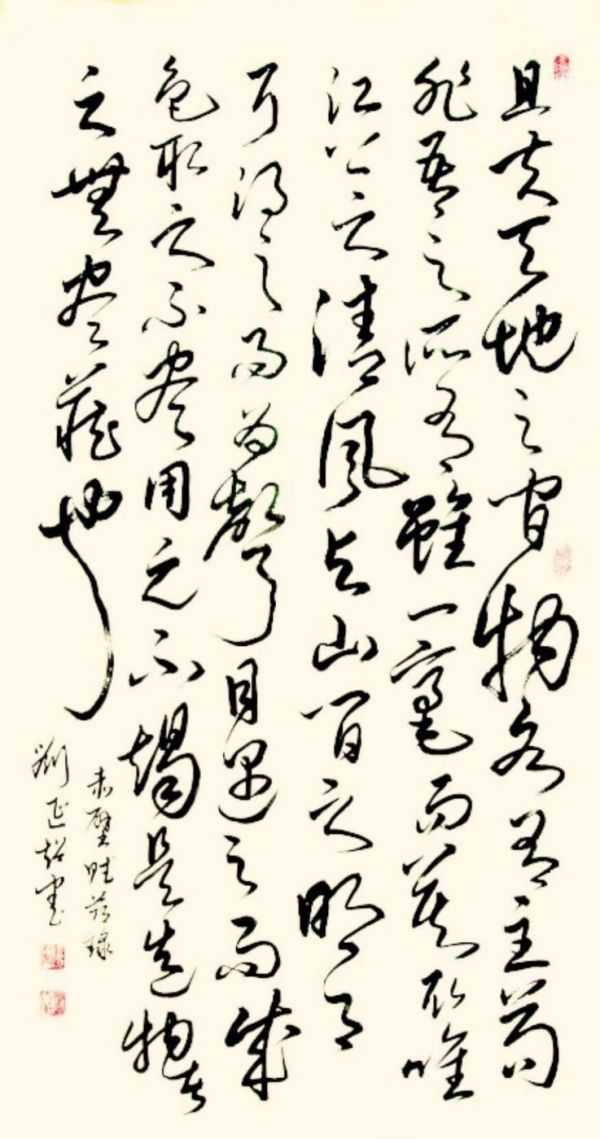 且夫天地之间物各有主苟
非吾之所有雖一毫而莫取唯
江上之清风与山间之明月
耳得之而为聲目遇之而成
色取之不尽用之不竭是造物者
之無尽藏也
赤壁賦节録
劉书